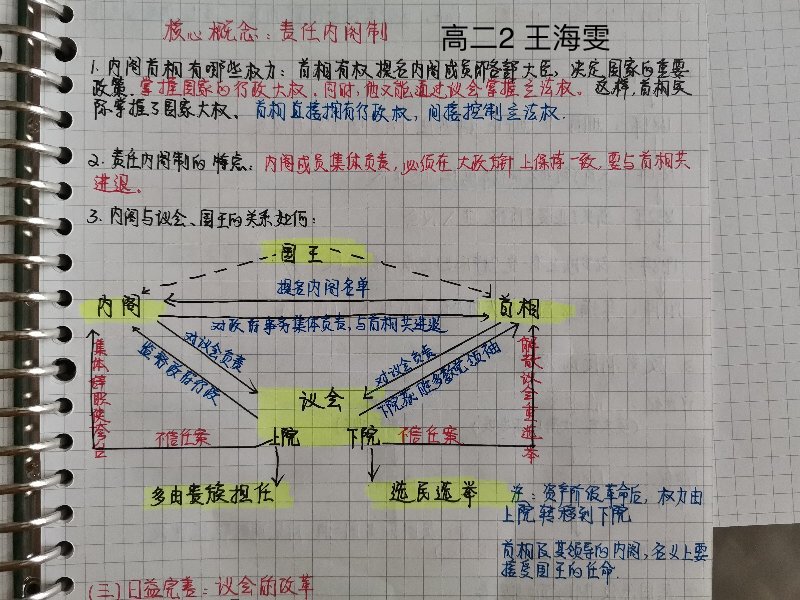 核心概念：责任内阁制
高二2 王海雯
1. 内阁首相有哪些权力：首相有权提名内阁成员即各部大臣，决定国家的重要
政策，掌握国家的行政大权。同时，他又能通过议会掌握立法权。这样，首相实
际掌握了国家大权。首相直接拥有行政权，间接控制立法权.
2. 责任内阁制的特点：内阁成员集体负责，必须在大政方针上保持一致，要与首相共
进退。
3. 内阁与议会、国王的关系如何：
国王
提名内阁名单
内阁
首相
对政府事务集体负责，与首相共进退
对议会负责
监督政府行政
对议会负责
下院获胜多数党领袖
集体辞职
解散议会重选举
议会
不信任案
上院
下院
不信任案
多由贵族担任
选民选举
注：资产阶级革命后，权力由
上院转移到下院
首相及其领导的内阁，名义上要
接受国王的任命.
(三)日益完善：议会的改革